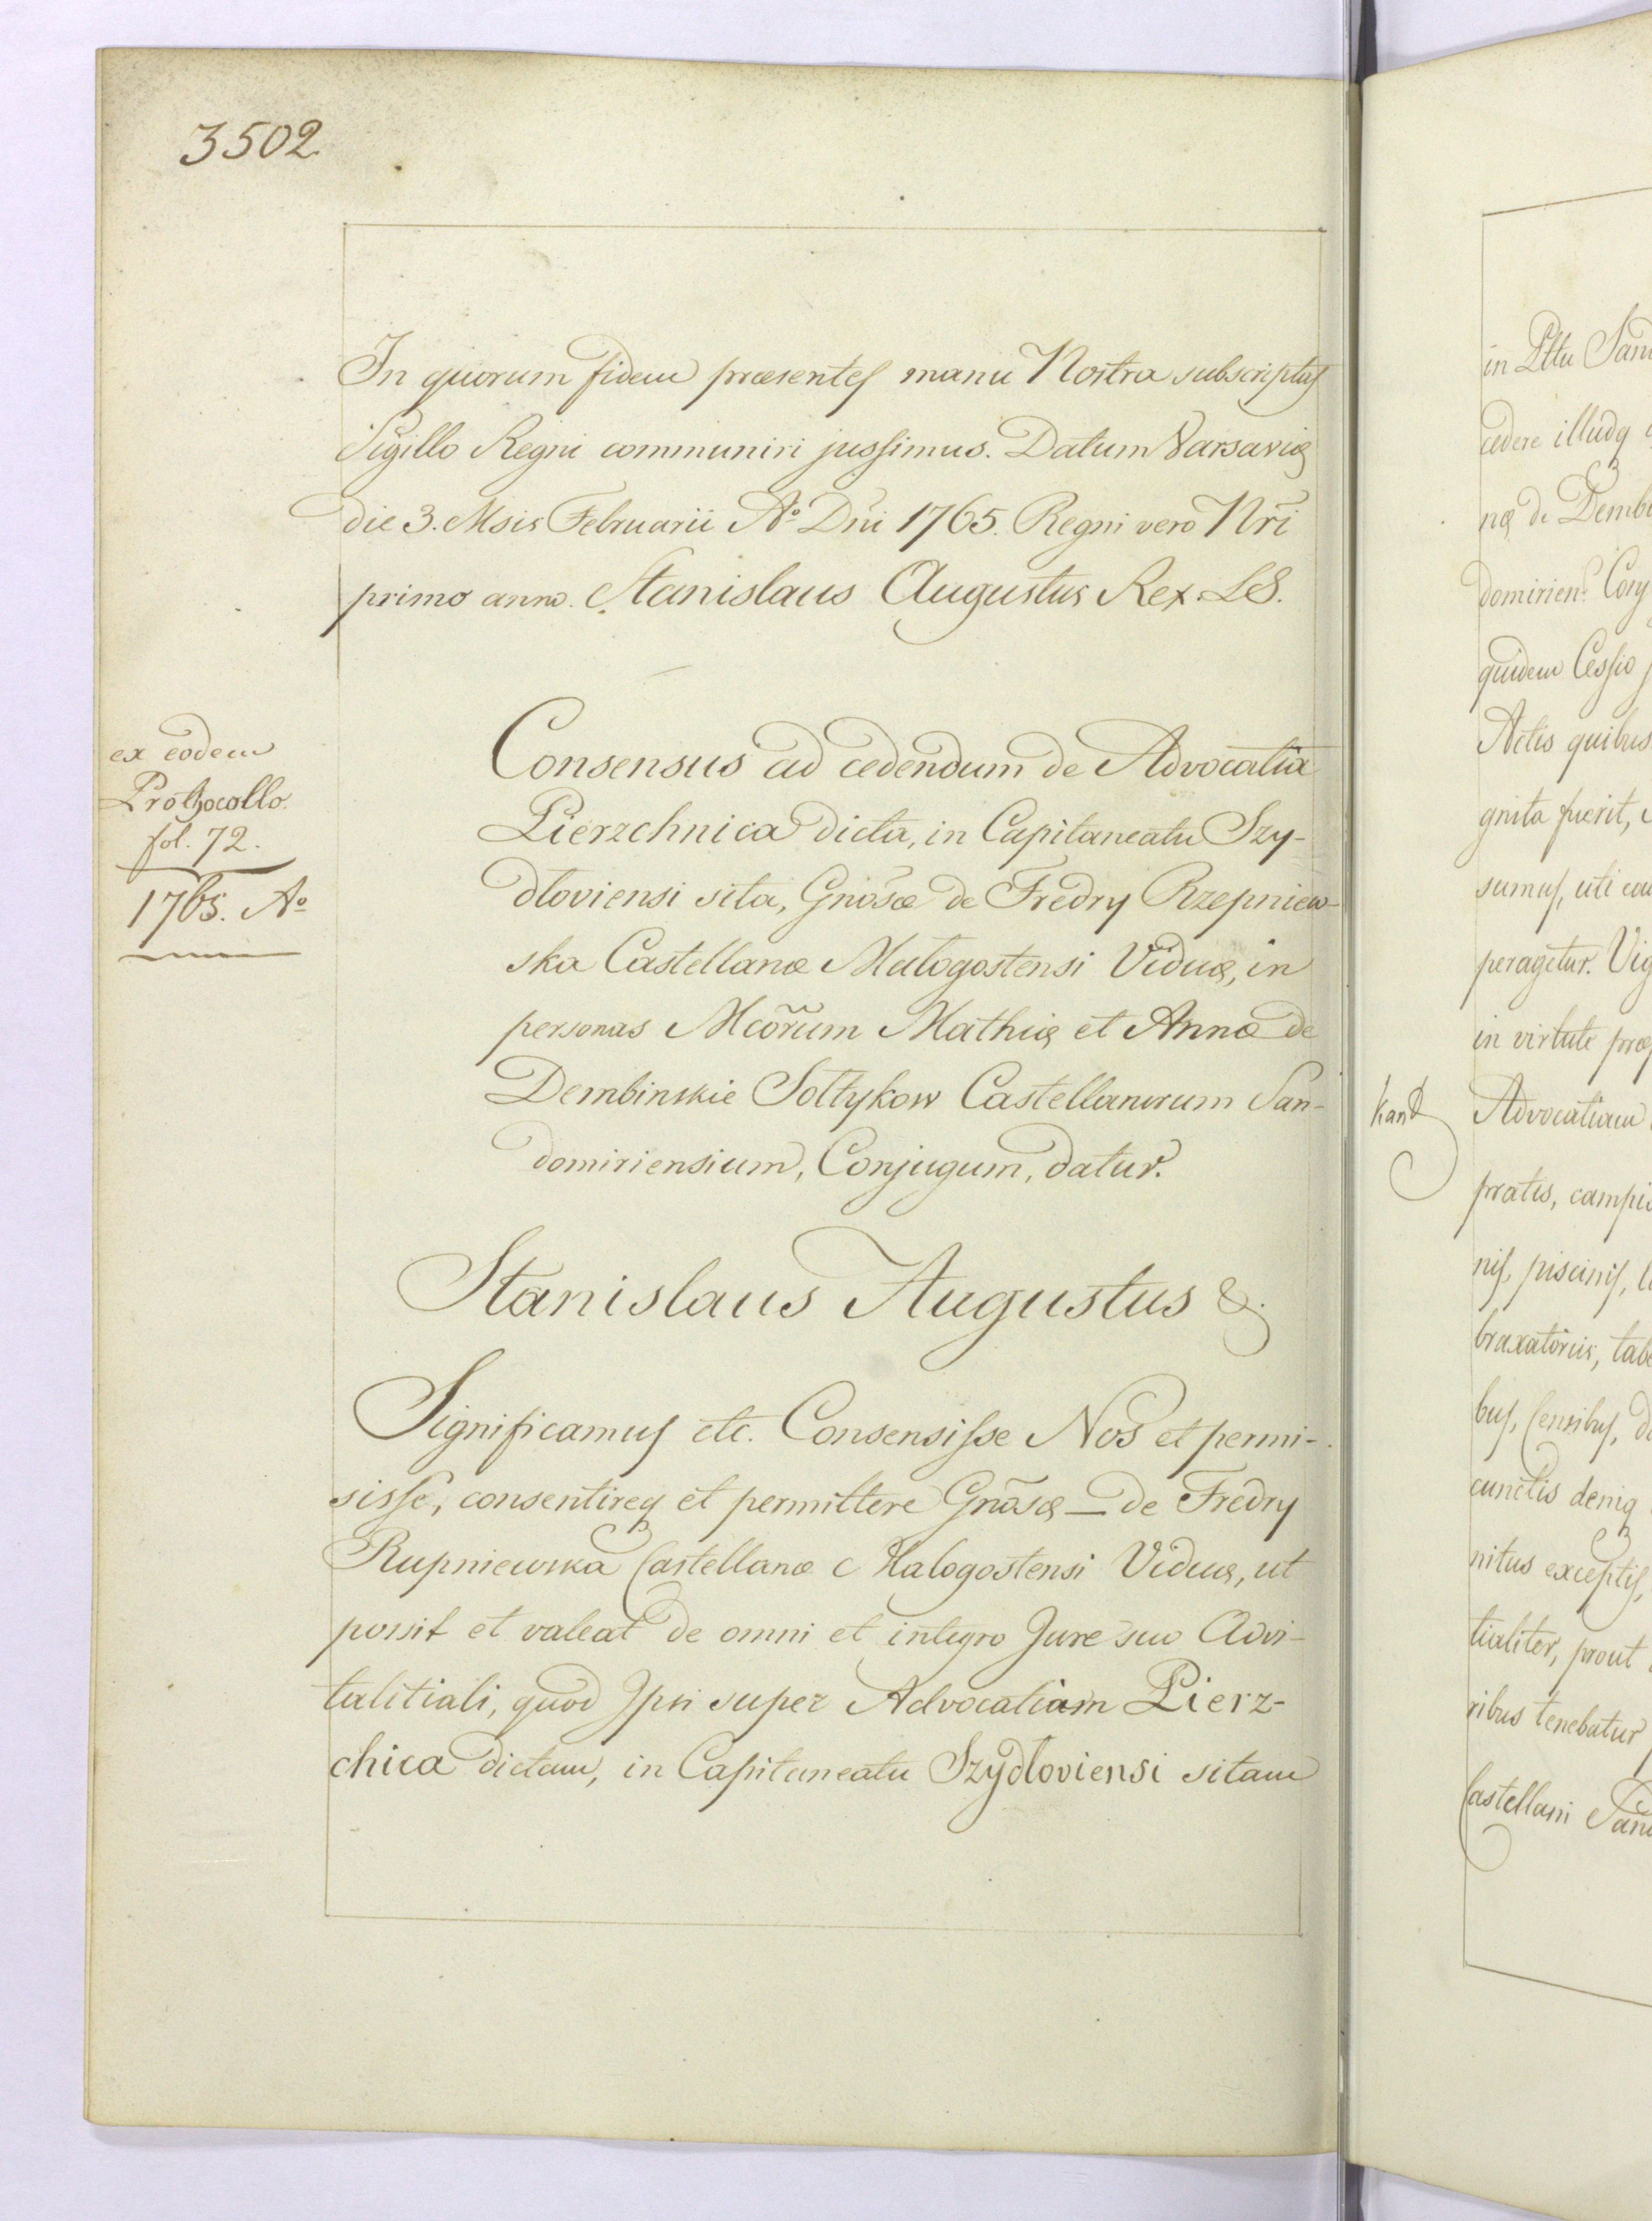 3502
In quorum fidem præsentes manu Nostra subscriptas
Sigillo Regni communiri jussimus. Datum Varsaviæ
die 3. Msis Februarii Aº Dñi 1765. Regni vero Nr̄i
primo anno. Stanislaus Augustus Rex. LS.
ex eodem
Prothocollo.
fol. 72.
1765. Aº
Consensus ad cedendum de Advocatia
Pierzchnica dicta, in Capitaneatu Szy-
dloviensi sita, Gnõsæ de Fredry Rzepniew-
ska Castellanæ Malogostensi Viduæ, in
personas Mcõrum Mathiæ et Annæ de
Dembinskie Sołtykow Castellanorum San-
domiriensium, Conjugum, datur.
Stanislaus Augustus &.
Significamus etc. Consensisse Nos et permi-
sisse, consentireq et permittere Gnõsæ — de Fredry
Rupniewska Castellanæ Malogostensi Viduæ, ut
possit et valeat de omni et integro Jure suo Advi-
talitiali, quod Ipsi super Advocatiam Pierz-
chica dictam, in Capitaneatu Szydłoviensi sitam
in Pttu San
cedere illudq
næ de Demb
domirien. Conj
quidem Cessio
Actis quibus
gnita fuerit,
sumus, uti
peragetur. Vig
in virtute
Advocatiam
pratis, campi
nis, piscinis,
braxatoriis, tabe
bus, Censibus,
cunctis deniq
nitus exceptis,
tialiter, prout
ribus tenebatur
Castellani San